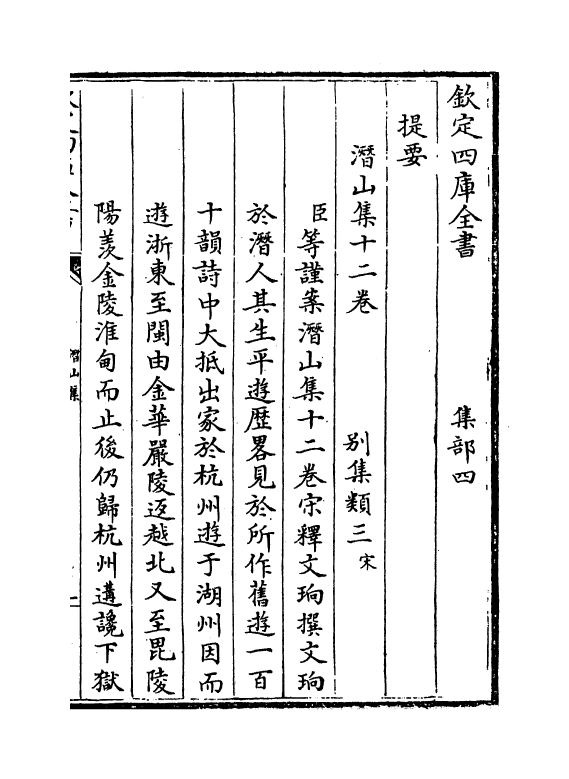 欽定四庫全書　集部四
提要
潛山集十二卷　别集類三宋
臣等謹案潛山集十二卷宋釋文珦撰文珦
於潛人其生平遊歴畧見於所作舊遊一百
十韻詩中大抵出家於杭州遊于湖州因而
遊浙東至閩由金華嚴陵返越北又至毘陵
陽羡金陵淮甸而止後仍歸杭州遘讒下獄
潛山集